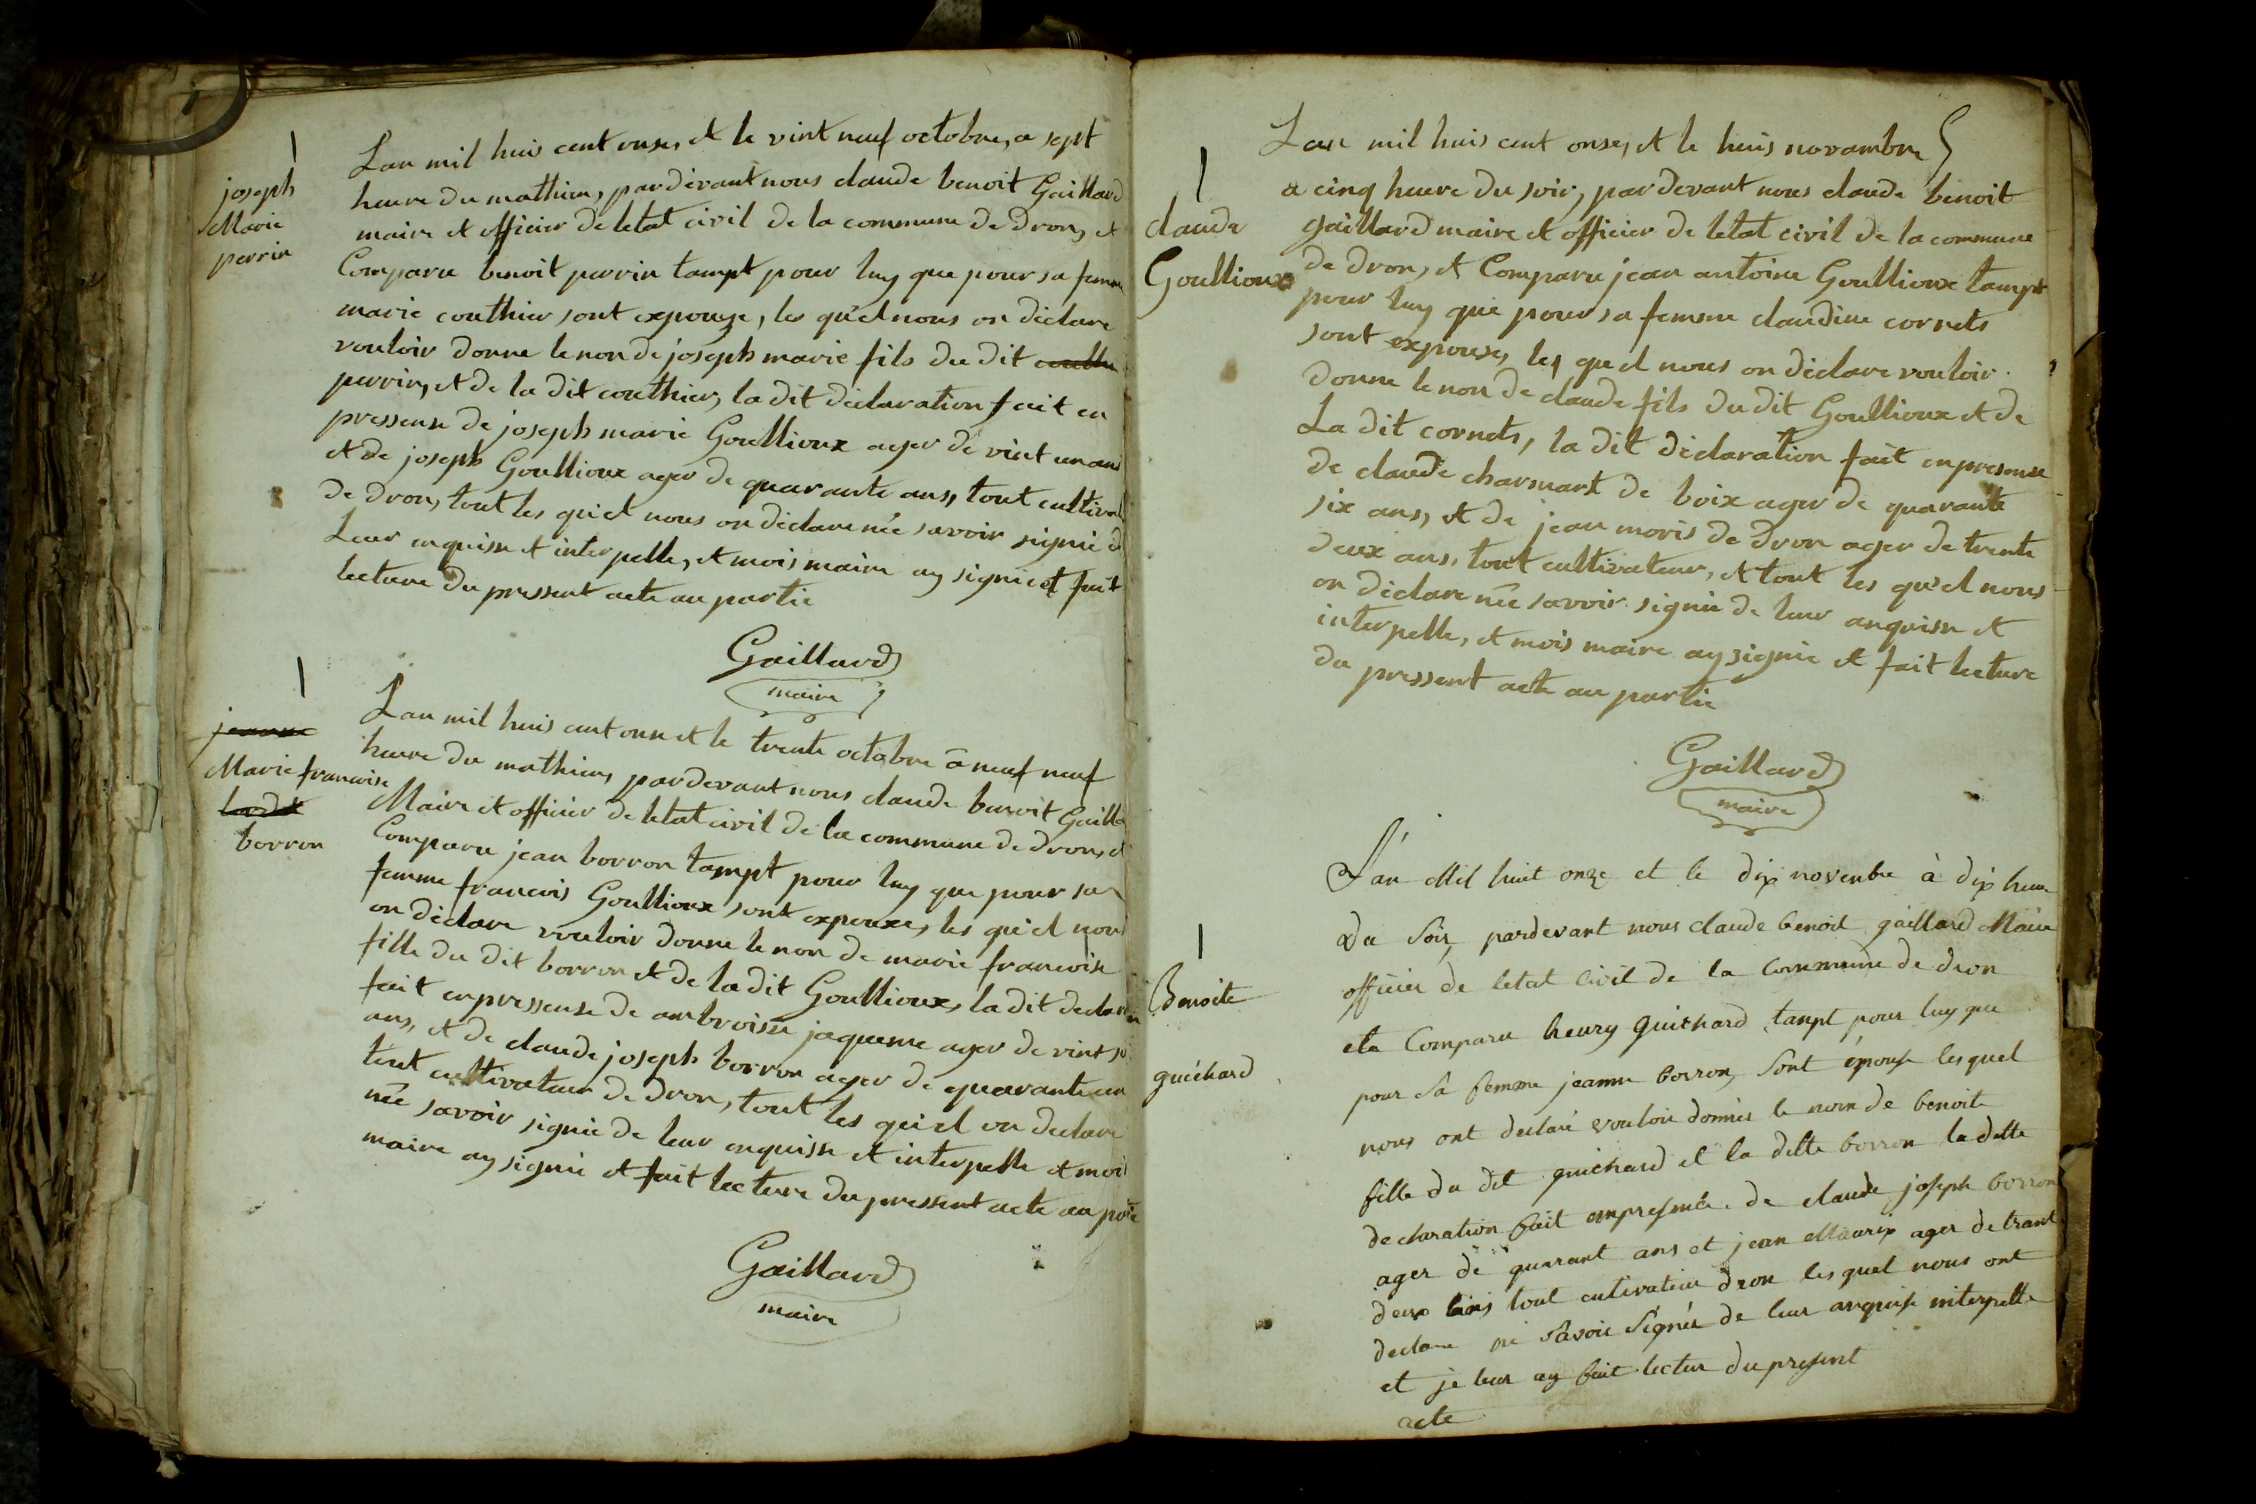 joseph
Marie
perrin
Lan mil huis cent onse, et le vint neuf octobre, a sept
heure du mathien, pardevant nous claude benoit Gaillard
maire et officier de letat civil de la commune de dron, et
Comparu benoit perrin tampt pour luy que pour sa femme
marie couthier sont expouze, les qu'el nous on declare
vouloir donne le non de joseph marie fils du dit
perrin, et de la dit couthier, la dit declaration fait en
pressense de joseph marie Goullioux ager de vint un ans
et de joseph Goullioux ager de quarante ans, tout cultivat
de dron, tout les qu'el nous on declare née savoir signie de
Leur enquise et interpelle, et mois maire ay signie et fait
lecture du pressent acte au partie
Gaillard
maire
jeanne
Marie francoise
borron
Lan mil huis cent onse et le trente octobre a neuf neuf
heure du mathien, pardevant nous claude benoit Gailla
Maire et officier de letat civil de la commune de dron, et
Comparu jean borron tampt pour luy que pour sa
femme francois Goullioux sont expouxe, les qu'el nous
on declare vouloir donne le non de marie francoise
fille du dit borron et de la dit Goullioux, la dit declaration
fait enpressense de ambroise jaqueme ager de vint
ans, et de claude joseph borron ager de quarante un
tout cultivateur de dron, tout les qu'el on declare
née savoir signie de leur enquise et interpelle et mois
maire ay signie et fait lecture du pressent acte au partie
Gaillard
maire
claude
Goullioux
Lan mil huis cent onse, et le huis novambre
a cinq heure du soir, pardevant nous claude benoit
Gaillard maire et officier de letat civil de la commune
de dron, et Comparu jean antoine Goullioux tampt
pour luy que pour sa femme claudine cornets
sont expouse, les quel nous on declare vouloir
donne le non de claude fils du dit Goullioux et de
La dit cornets, la dit declaration fait enpresense
de claude charmant de boix ager de quarante
six ans, et de jean moris de dron ager de trente
deux ans, tout cultivateur, et tout les qu'el nous
on declare née savoir signie de leur anquise et
interpelle, et mois maire ay signie et fait lecture
du pressent acte au partie
Gaillard
maire
Benoite
guichard
L'an Mil huit onze et le dix novenbre à dix heur
du Soir, pardevant nous claude benoit gaillard Maire
officier de letat Civil de la Commune de dron
eta Comparu henry guichard tanpt pour luy que
pour Sa femme jeanne borron, Sont épouse lesquel
nous ont declaré vouloir donnés le nom de benoite
fille du dit guichard et la ditte borron la ditte
declaration fait anpresence de claude joseph borron
ager de quarant ans et jean Maurix ager de trant
deux ans tout cutivateur dron les quel nous ont
declare ne Savoir Signés de leur anquise interpelle
et je leur ay fait lectur du present
acte